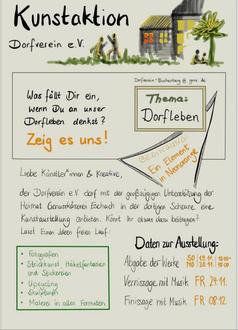 Kunstaktion
Dorfverein e.V.
Was fällt Dir ein,
wenn Du an unser
Dorfleben denkst?
Zeig es uns!
Thema:
Dorfleben
Ein Element
in Neonorange
Liebe Künstler*innen & Kreative,
der Dorfverein e.V. darf mit der großzügigen Unterstützung der
Heimat Eschbach in der dortigen Scheune eine
Kunstausstellung anbieten. Könnt Ihr etwas dazu beitragen?
Lasst Euren Ideen freien Lauf:
Fotografien
Strickkunst, Häkelfantasien
und Stickereien
Upcycling
Skulpturen
Malerei in allen Formaten
Daten zur Ausstellung:
Abgabe der Werke
SO 19.11.
MO 20.11.
Vernissage mit Musik FR 24.11.
Finissage mit Musik FR 08.12.